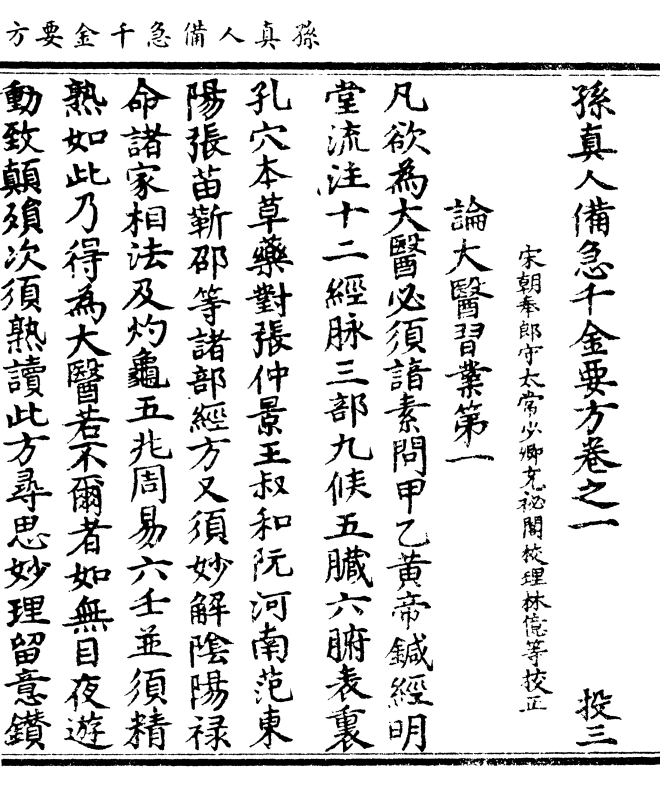 孫真人備急千金要方
孫真人備急千金要方卷之一 投三
宋朝奉郎守太常少卿充祕閣校理林億等校正
論大醫習業第一
凡欲為大醫必須諳素問甲乙黃帝鍼經明
堂流注十二經脉三部九候五臟六腑表裏
孔穴本草藥對張仲景王叔和阮河南范東
陽張苗靳邵等諸部經方又須妙解陰陽禄
命諸家相法及灼龜五兆周易六壬並須精
熟如此乃得為大醫若不爾者如無目夜遊
動致顛殞次須熟讀此方尋思妙理留意鑚